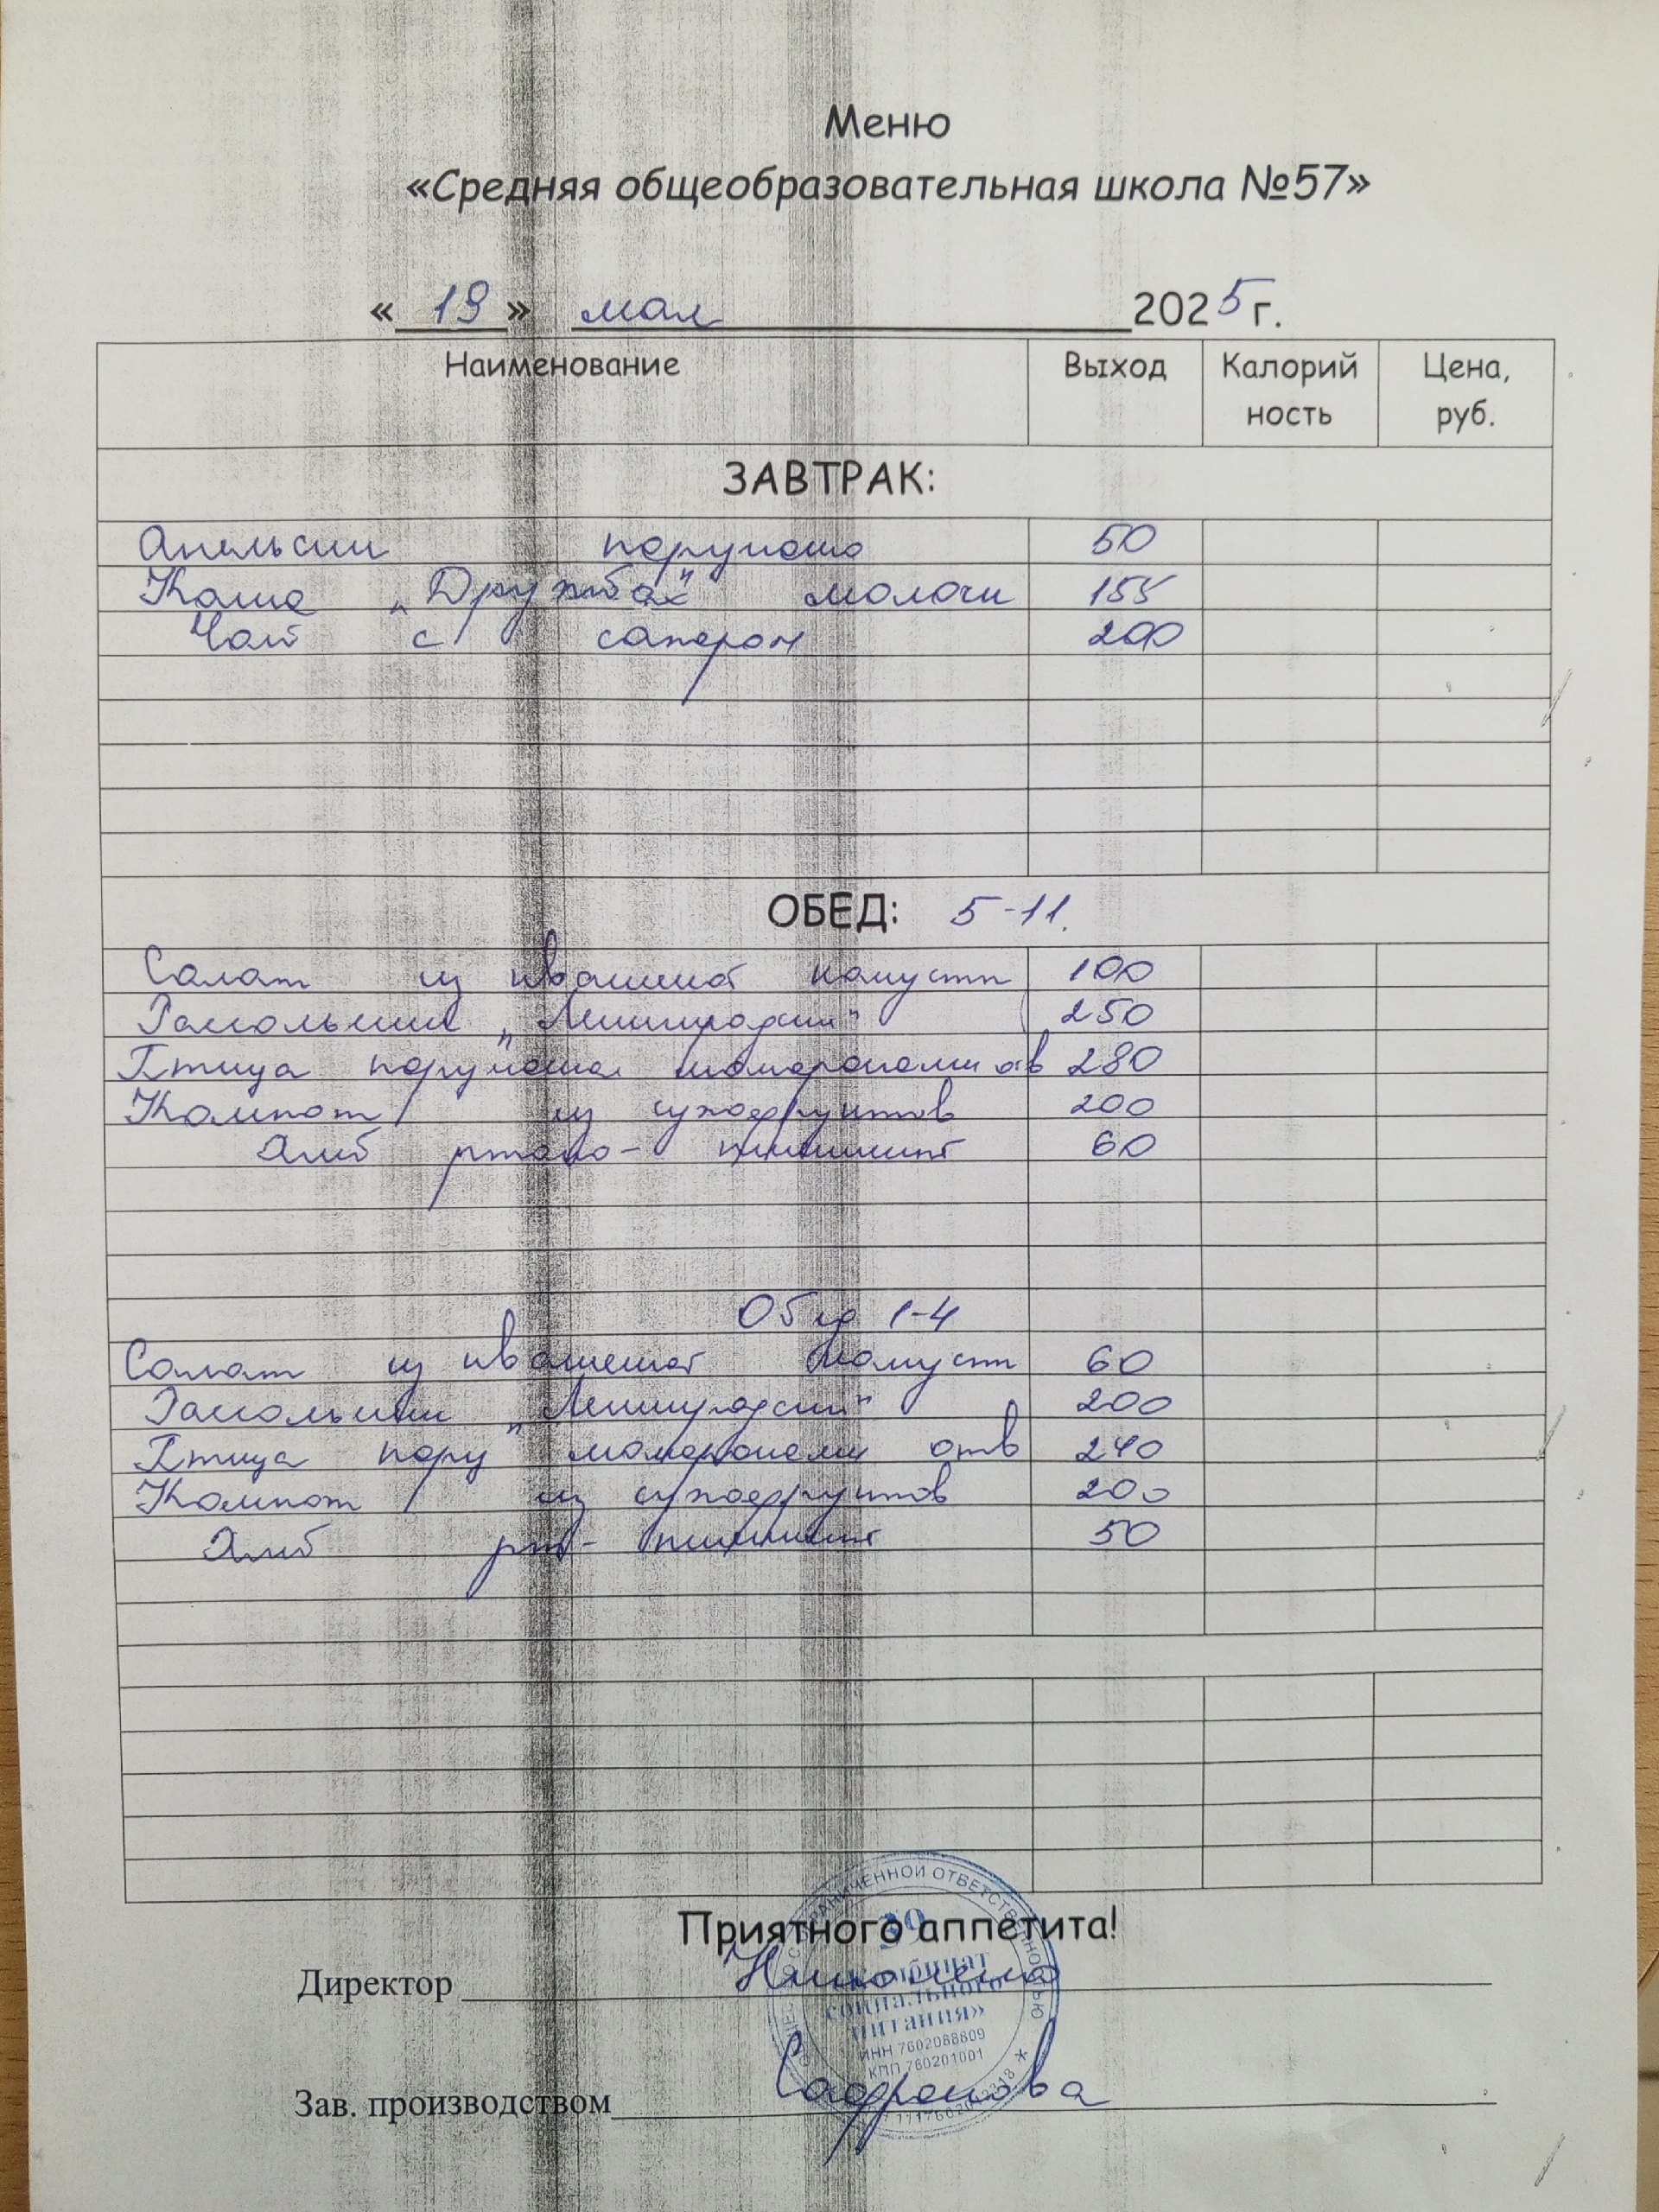 Меню
«Средняя общеобразовательная школа №57»
«19» мая 2025 г.
Наименование Выход Калорий ность Цена, руб.
ЗАВТРАК:
Апельсин порционно 50
Каша "Дружба" молочн 155
Чай с сахаром 200
ОБЕД: 5-11.
Салат из квашеной капусты 100
Рассольник "Ленинградский" 250
Птица порционная макаронами отв 280
Компот из сухофруктов 200
Хлеб ржано- пшеничный 60
Обед 1-4
Салат из квашеной капусты 60
Рассольник "Ленинградский" 200
Птица порц макаронами отв 240
Компот из сухофруктов 200
Хлеб рж- пшеничный 50
Приятного аппетита!
Директор
Комбинат
социального
питания»
ИНН 7602088809
КПП 760201001
Зав. производством